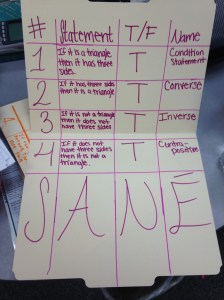 # Statement T/F Name
1 If it is a triangle, then it has three sides. T Condition Statement
2 If it has three sides then it is a triangle. T Converse
3 If it is not a triangle then it does not have three sides T Inverse
4 If it does not have three sides then it is not a triangle. T Contra-positive
S A N E